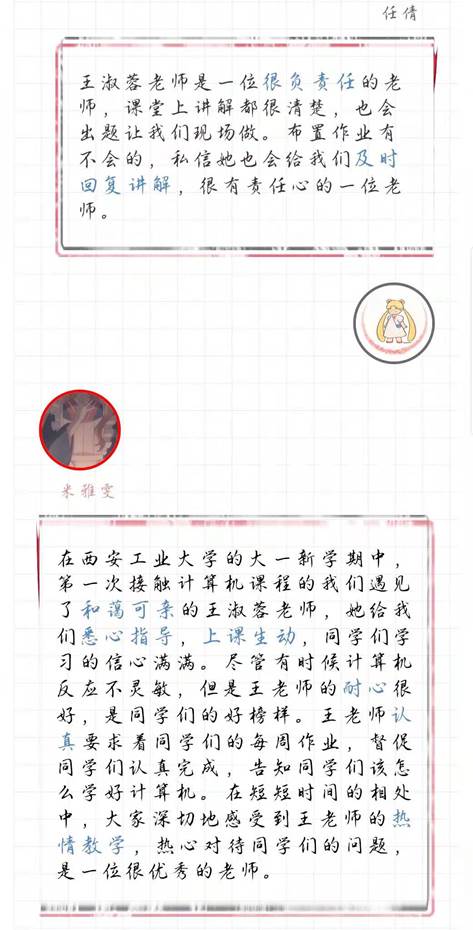 任倩
王淑蓉老师是一位很负责任的老
师，课堂上讲解都很清楚，也会
出题让我们现场做。布置作业有
不会的，私信她也会给我们及时
回复讲解，很有责任心的一位老
师。
米雅雯
在西安工业大学的大一新学期中，
第一次接触计算机课程的我们遇见
了和蔼可亲的王淑蓉老师，她给我
们悉心指导，上课生动，同学们学
习的信心满满。尽管有时候计算机
反应不灵敏，但是王老师的耐心很
好，是同学们的好榜样。王老师认
真要求着同学们的每周作业，督促
同学们认真完成，告知同学们该怎
么学好计算机。在短短时间的相处
中，大家深切地感受到王老师的热
情教学，热心对待同学们的问题，
是一位很优秀的老师。